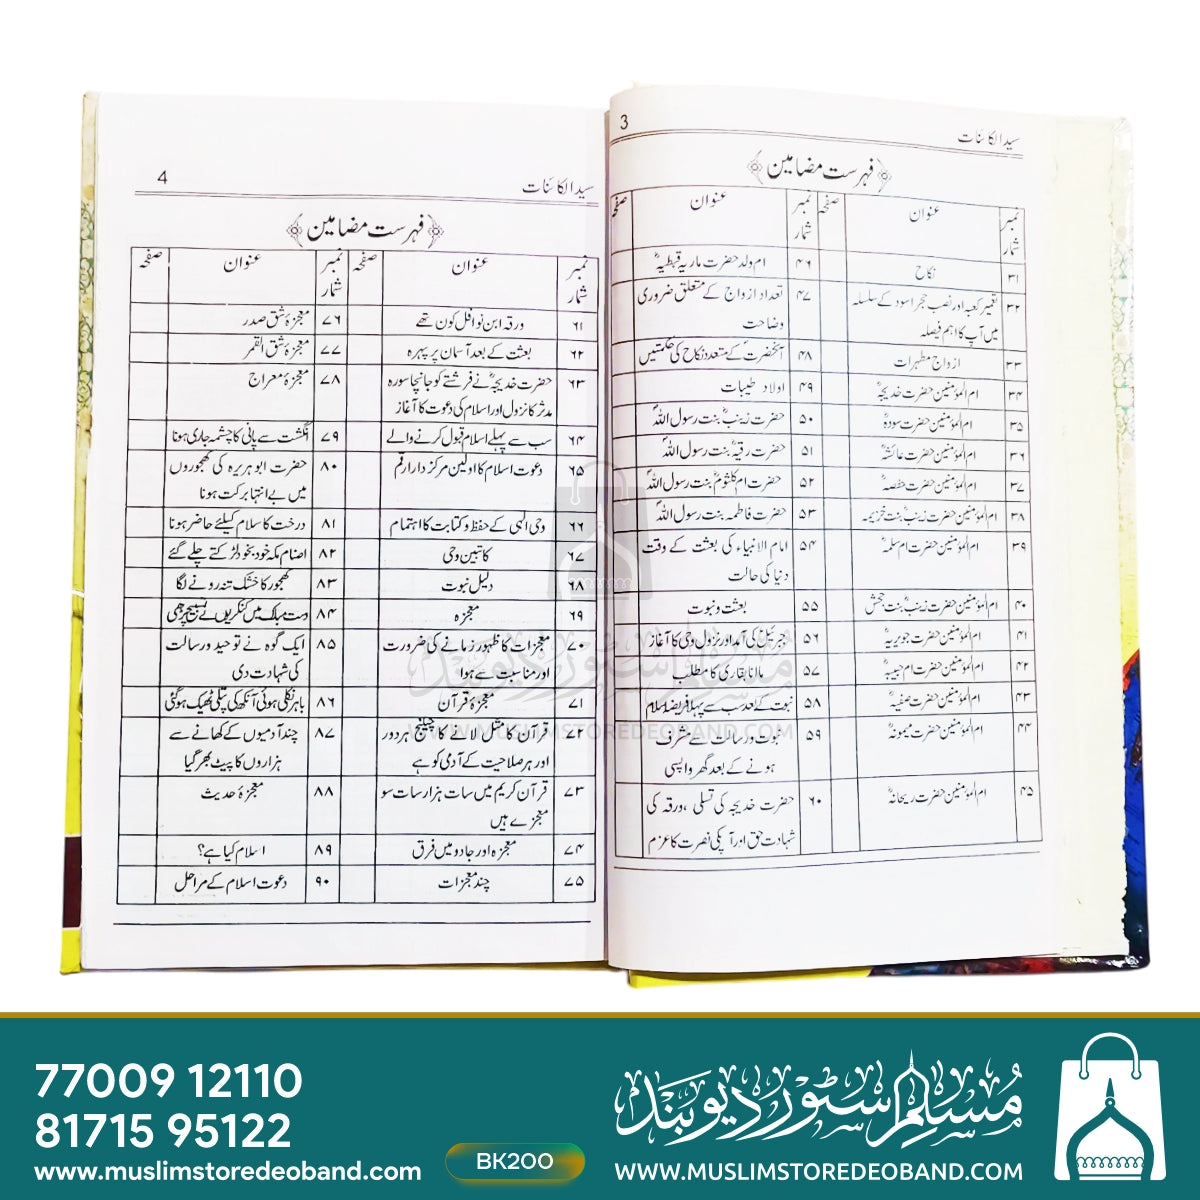 3
سید الکائنات
فہرست مضامین
نمبر شمار
عنوان
صفحہ
نمبر شمار
عنوان
صفحہ
۳۱
نکاح
۳۲
تعمیر کعبہ اور نصب حجر اسود کے سلسلہ
میں آپ کا اہم فیصلہ
۳۳
ازواج مطہرات
۳۴
ام المؤمنین حضرت خدیجہؓ
۳۵
ام المؤمنین حضرت سودہؓ
۳۶
ام المؤمنین حضرت عائشہؓ
۳۷
ام المؤمنین حضرت حفصہؓ
۳۸
ام المؤمنین حضرت زینبؓ بنت خزیمہ
۳۹
ام المؤمنین حضرت ام سلمہؓ
۴۰
ام المؤمنین حضرت زینبؓ بنت جحش
۴۱
ام المؤمنین حضرت جویریہؓ
۴۲
ام المؤمنین حضرت ام حبیبہؓ
۴۳
ام المؤمنین حضرت صفیہؓ
۴۴
ام المؤمنین حضرت میمونہؓ
۴۵
ام المؤمنین حضرت ریحانہؓ
۴۶
ام ولد حضرت ماریہ قبطیہؓ
۴۷
تعداد ازواج کے متعلق ضروری
وضاحت
۴۸
آنحضرتؐ کے متعدد نکاح کی حکمتیں
۴۹
اولاد طیبات
۵۰
حضرت زینبؓ بنت رسول اللہؐ
۵۱
حضرت رقیہؓ بنت رسول اللہؐ
۵۲
حضرت ام کلثومؓ بنت رسول اللہؐ
۵۳
حضرت فاطمہ بنت رسول اللہؐ
۵۴
امام الانبیاء کی بعثت کے وقت
دنیا کی حالت
۵۵
بعثت و نبوت
۵۶
جبرئیلؑ کی آمد اور نزول وحی کا آغاز
۵۷
ما انا بقاری کا مطلب
۵۸
نبوت کے بعد سب سے پہلا فریضہ اسلام
۵۹
نبوت و رسالت سے مشرف
ہونے کے بعد گھر واپسی
۶۰
حضرت خدیجہ کی تسلی، ورقہ کی
شہادت حق اور آپکی نصرت کا عزم
4
سید الکائنات
فہرست مضامین
نمبر شمار
عنوان
صفحہ
نمبر شمار
عنوان
صفحہ
۶۱
ورقہ ابن نوافل کون تھے
۶۲
بعثت کے بعد آسمان پر پہرہ
۶۳
حضرت خدیجہؓ نے فرشتے کو جانچا سورہ
مدثر کا نزول اور اسلام کی دعوت کا آغاز
۶۴
سب سے پہلے اسلام قبول کرنے والے
۶۵
دعوت اسلام کا اولین مرکز دار ارقم
۶۶
وحی الٰہی کے حفظ و کتابت کا اہتمام
۶۷
کاتبین وحی
۶۸
دلیل نبوت
۶۹
معجزہ
۷۰
معجزات کا ظہور زمانے کی ضرورت
اور مناسبت سے ہوا
۷۱
معجزۂ قرآن
۷۲
قرآن کا مثل لانے کا چیلنج ہر دور
اور ہر صلاحیت کے آدمی کو ہے
۷۳
قرآن کریم میں سات ہزار سات سو
معجزے ہیں
۷۴
معجزہ اور جادو میں فرق
۷۵
چند معجزات
۷۶
معجزۂ شق صدر
۷۷
معجزۂ شق القمر
۷۸
معجزۂ معراج
۷۹
انگشت سے پانی کا چشمہ جاری ہونا
۸۰
حضرت ابو ہریرہ کی کھجوروں
میں بے انتہا برکت ہونا
۸۱
درخت کا سلام کیلئے حاضر ہونا
۸۲
اصنام مکہ خود بخود لڑکتے چلے گئے
۸۳
کھجور کا خشک تنہ رونے لگا
۸۴
دست مبارک میں کنکریوں نے تسبیح پڑھی
۸۵
ایک گوہ نے توحید و رسالت
کی شہادت دی
۸۶
باہر نکلی ہوئی آنکھ کی پتلی ٹھیک ہوگئی
۸۷
چند آدمیوں کے کھانے سے
ہزاروں کا پیٹ بھر گیا
۸۸
معجزۂ حدیث
۸۹
اسلام کیا ہے؟
۹۰
دعوت اسلام کے مراحل
مسلم سٹور دیوبند
WWW.MUSLIMSTOREDEOBAND.COM
77009 12110
81715 95122
www.muslimstoredeoband.com
BK200
مسلم سٹور دیوبند
WWW.MUSLIMSTOREDEOBAND.COM